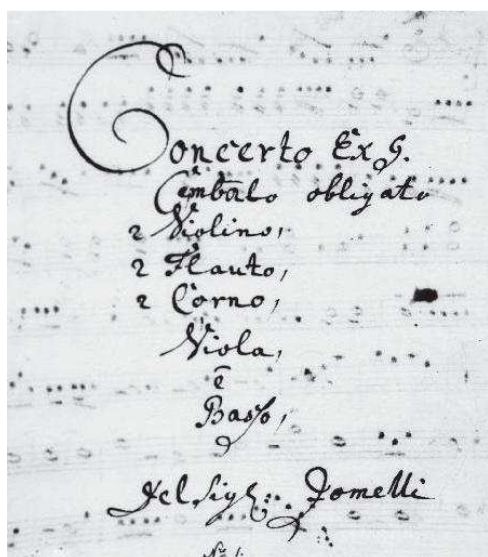 Concerto Ex G.
Cembalo obligato
2 Violino,
2 Flauto,
2 Corno,
Viola,
è
Basso,
Del Sigl:: Jomelli
No 1: